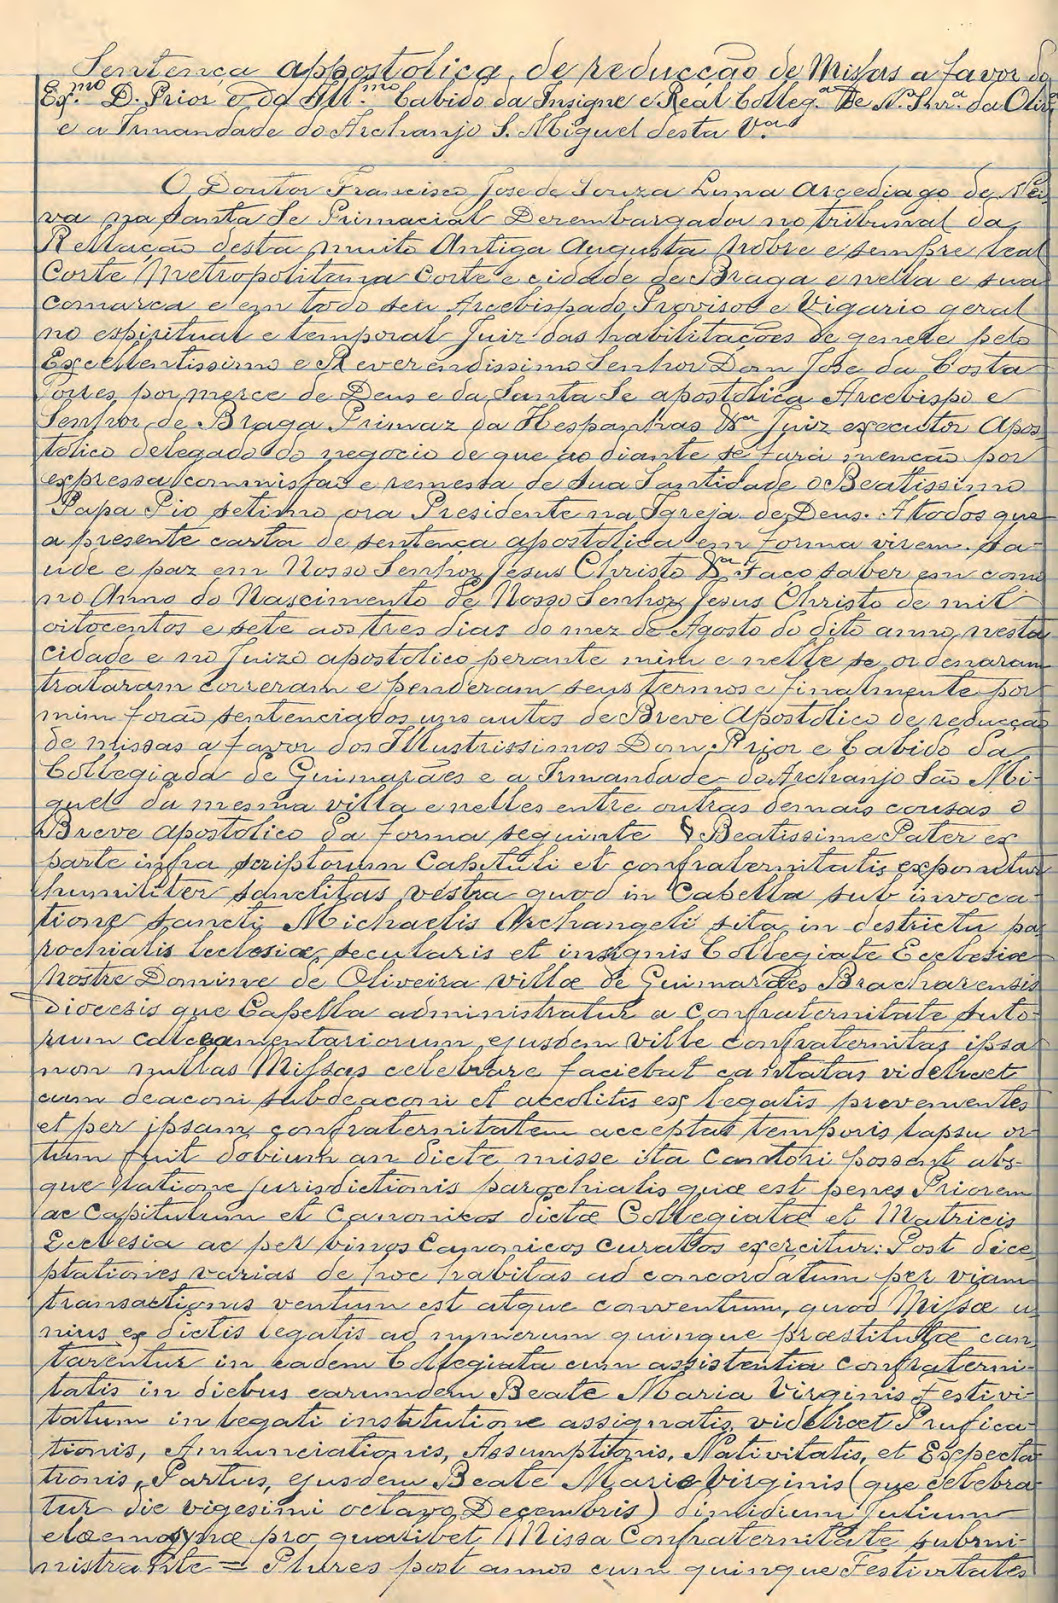 Sentença appostolica, de reducção de Missas a favor do
Ex.mo D. Prior e do Ill.mo Cabido da Insigne e Real Colleg.a De N. Snr.a da Oliv.a
e a Irmandade do Archanjo S. Miguel desta V.a
O Doutor Francisco Jose de Souza Lima Arcediago de Nei-
va na Santa Se Primacial Dezembargador no tribunal da
Rellação desta muito Antiga Augusta Nobre e sempre leal
Corte Metropolitana Corte e cidade de Braga e nella e sua
comarca e em todo seu Arcebispado Provisor e Vigario geral
no espiritual e temporal Juiz das habilitações de genere pelo
Excellentissimo e Reverendissimo Senhor Dom Jose da Costa
Torres por merce de Deus e da Santa Se apostolica Arcebispo e
Senhor de Braga Primaz da Hespanhas &a Juiz executor Apos-
tolico delegado do negocio de que ao diante se fará menção por
expressa commissão e remessa de Sua Santidade o Beatissimo
Papa Pio Setimo ora Presidente na Igreja de Deus. A todos que
a presente carta de sentença apostolica em forma virem. sa-
ude e paz em Nosso Senhor Jesus Christo &a Faço saber em como
no Anno do Nascimento de Nosso Senhor Jesus Christo de mil
oitocentos e sete aos tres dias do mez de Agosto do dito anno, nesta
cidade e no Juizo apostolico perante mim e nelle se ordenaram
trataram correram e penderam seus termos e finalmente por
mim forão sentenciados uns autos de Breve Apostolico de reducção
de missas a favor dos Illustrissimos Dom Prior e Cabido da
Collegiada de Guimarães e a Irmandade do Archanjo São Mi-
guel da mesma villa e nelles entre outras demais cousas o
Breve apostolico da forma seguinte § Beatissime Pater ex
parte infra scriptorum Capituli et confraternitatis exponitur
humiliter sanctitas vestra quod in Cabella sub invoca-
tione Sancti Michaelis Archangeli sita in destrictu pa-
rochialis Ecclesiæ, secularis et insignis Collegiate Ecclesiæ
Nostre Domine de Oliveira villæ de Guimarães Bracharensis
Diocesis que Capella administratur a confraternitate suto-
rum calceamentariorum ejusdem ville confraternitas ipsa
non nullas Missas celebrare faciebat cantatas videlicet
cum deaconi subdeaconi et accolitis ex legatis provenientes
et per ipsam confraternitatem acceptas temporis lapsu or-
tum fuit dobium an dicte misse ita cantari possent abs-
que latione jurisdictionis parochialis quæ est penes Priorem
ac Capitulum et Canonicos dictæ Collegiatæ et Matricis
Ecclesia ac per binos Canonicos curatos exercitur: Post dice-
ptationes varias de hoc habitas ad concordatum per viam
transactionis ventum est atque conventum, quod Missæ u-
nius ex dictis legatis ad numerum quinque præstitutæ can-
tarentur in eadem Collegiata cum assistentia confraterni-
tatis in diebus earumdem Beate Maria Virginis Festivi-
tatum in legati institutione assignatis, videlicet Purifica-
tionis, Annunciationis, Assumptionis, Nativitatis, et Expecta-
tionis, Partus, ejusdem Beate Marie Virginis (que celebra-
tur die vigesimi octavo Decembris) dimidium Julium
elæmosynæ pro qualibet Missa Confraternitate submi-
nistrante = Plures post annos cum quinque Festivitates